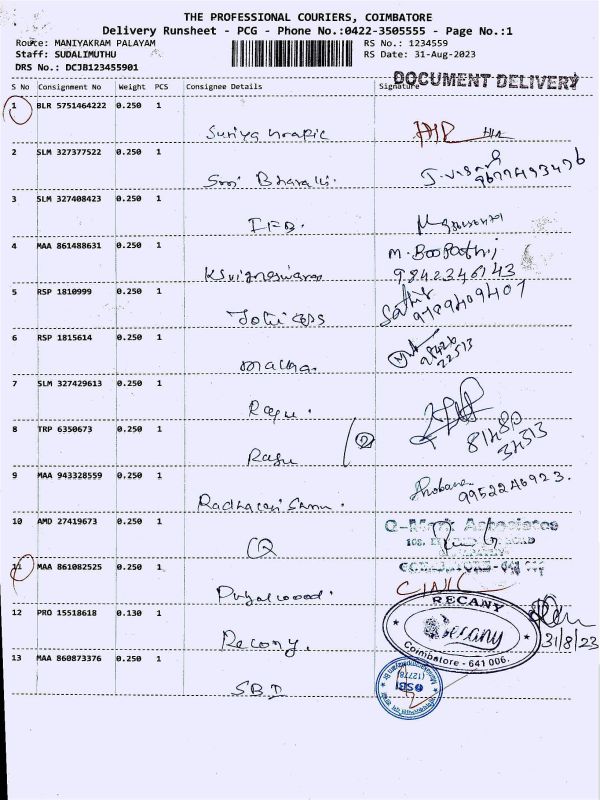 THE PROFESSIONAL COURIERS, COIMBATORE
Delivery Runsheet - PCG - Phone No.:0422-3505555 - Page No.:1
Route: MANIYAKRAM PALAYAM
RS No.: 1234559
Staff: SUDALIMUTHU
RS Date: 31-Aug-2023
DRS No.: DCJB123455901
DOCUMENT DELIVERY
S No Consignment No Weight PCS Consignee Details Signature
1 BLR 5751464222 0.250 1
2 SLM 327377522 0.250 1
J. 
3 SLM 327408423 0.250 1
IFB.
4 MAA 861488631 0.250 1
M. Boopathi
9842346143
5 RSP 1810999 0.250 1
9789409407
6 RSP 1815614 0.250 1
98426
22513
7 SLM 327429613 0.250 1
Ragu.
8 TRP 6350673 0.250 1
Ragu
2
81480
34513
9 MAA 943328559 0.250 1
9952246923.
10 AMD 27419673 0.250 1
Q-Mark Associates
108,
ROAD
COIMBATORE-641
11 MAA 861082525 0.250 1
12 PRO 15518618 0.130 1
Recany.
RECANY
Recany
Coimbatore - 641 006.
31/8/23
13 MAA 860873376 0.250 1
SBI
SBI
(12778)